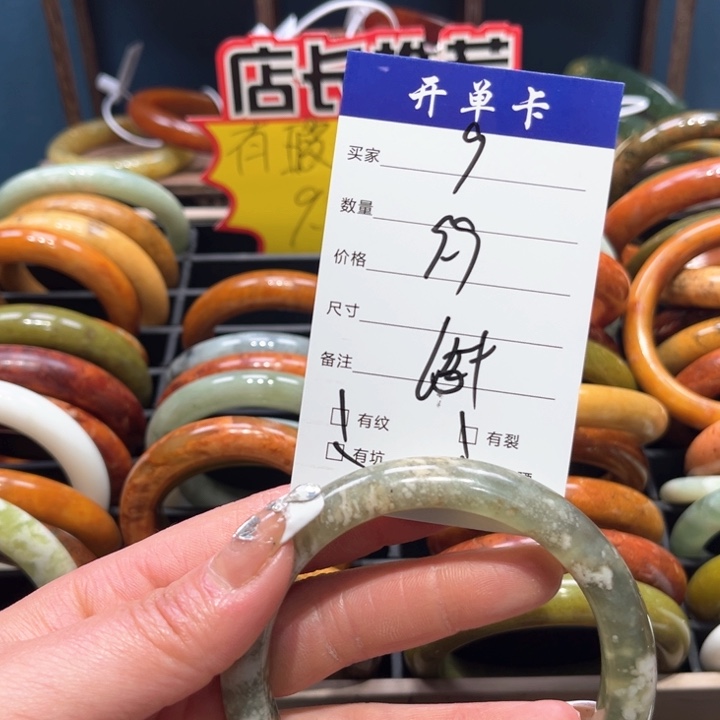 店长推荐
有瑕
9.
开单卡
买家 9
数量
价格
尺寸
备注
有纹
有裂
有坑